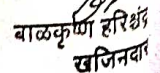 बाळकृष्ण हरिश्चंद्र
खजिनदार